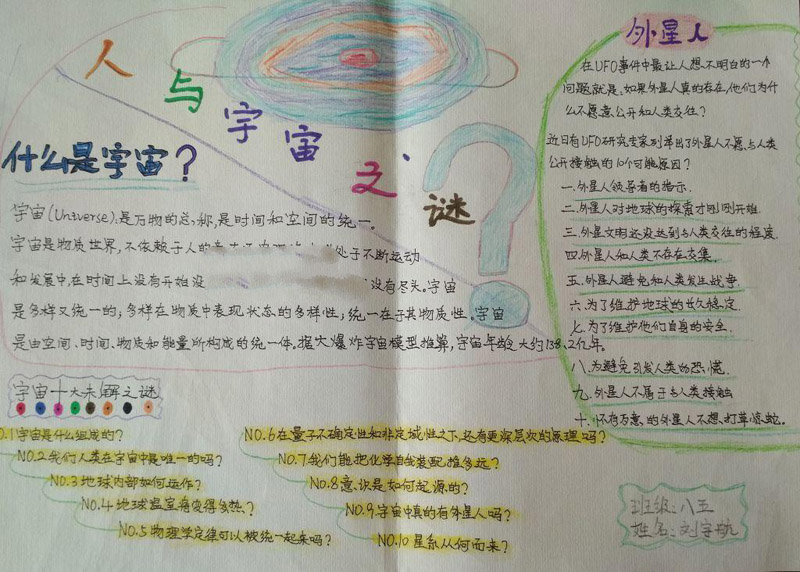 人与宇宙之谜
什么是宇宙?
宇宙(Universe),是万物的总称,是时间和空间的统一。
宇宙是物质世界,不依赖于人的 处于不断运动
和发展中,在时间上没有开始没 没有尽头。宇宙
是多样又统一的;多样在物质中表现状态的多样性;统一在于其物质性。宇宙
是由空间、时间、物质和能量所构成的统一体。据大爆炸宇宙模型推算,宇宙年龄大约138.2亿年。
宇宙十大未解之谜
NO.1宇宙是什么组成的?
NO.2我们人类在宇宙中是唯一的吗?
NO.3地球内部如何运作?
NO.4地球温室将变得多热?
NO.5物理学定律可以被统一起来吗?
NO.6在量子不确定性和非定域性之下,还有更深层次的原理吗?
NO.7我们能把化学自我装配推多远?
NO.8意识是如何起源的?
NO.9宇宙中真的有外星人吗?
NO.10星系从何而来?
外星人
在UFO事件中最让人想不明白的一个
问题就是,如果外星人真的存在,他们为什
么不愿意公开和人类交往?
近日有UFO研究专家列举出了外星人不愿与人类
公开接触的10个可能原因?
一.外星人领导者的指示.
二.外星人对地球的探索才刚刚开始.
三.外星文明还没达到与人类交往的程度.
四.外星人和人类不存在交集.
五.外星人避免和人类发生战争.
六.为了维护地球的长久稳定.
七.为了维护他们自身的安全.
八.为避免引发人类的恐慌.
九.外星人不屑于与人类接触
十.怀有歹意的外星人不想打草惊蛇.
班级:八五
姓名:刘宇航